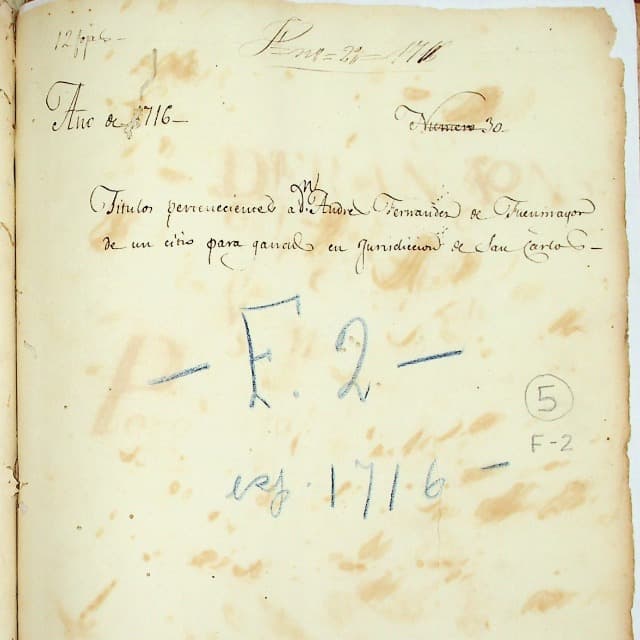 12 fojas –
Año de 1716 –
Numero 30
Titulos pertenecientes a Dn Andres Fernandes de Fuenmayor
de un citio para ganados en Jurisdiccion de San Carlos –
– F. 2 –
5
F-2
exp. 1716 –